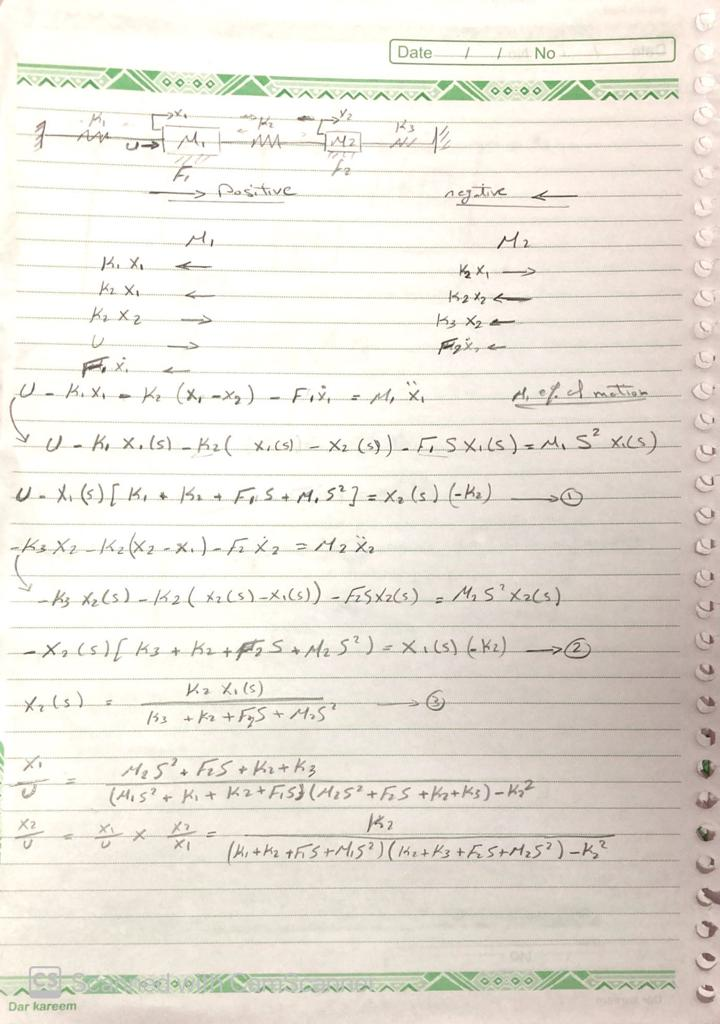 Date / / No
K₁ x₁ K₂ x₂ K₃
U → M₁ M₂
F₁ F₂
→ Positive negative ←
M₁ M₂
K₁ X₁ ← K₂ X₁ →
K₂ X₁ ← K₂ X₂ ←
K₂ X₂ → K₃ X₂ ←
U → F₂ẋ₂ ←
F₁ ẋ₁ ←
U - K₁ X₁ - K₂ (X₁ - X₂) - F₁ẋ₁ = M₁ ẍ₁ M₁ eq. of motion
U - K₁ X₁(s) - K₂( X₁(s) - X₂(s)) - F₁ S X₁(s) = M₁ S² X₁(s)
U - X₁(s) [ K₁ + K₂ + F₁ S + M₁ S² ] = X₂(s) (-K₂) → ①
-K₃ X₂ - K₂(X₂ - X₁) - F₂ ẋ₂ = M₂ ẍ₂
-K₃ X₂(s) - K₂( X₂(s) - X₁(s)) - F₂SX₂(s) = M₂ S² X₂(s)
- X₂(s) [ K₃ + K₂ + F₂ S + M₂ S² ) = X₁(s) (-K₂) → ②
X₂(s) = K₂ X₁(s) / K₃ + K₂ + F₂S + M₂S² → ③
X₁/U = M₂ S² + F₂S + K₂ + K₃ / (M₁S² + K₁ + K₂ + F₁S) (M₂S² + F₂S + K₂ + K₃) - K₂²
X₂/U = X₁/U × X₂/X₁ = K₂ / (K₁ + K₂ + F₁S + M₁S²) (K₂ + K₃ + F₂S + M₂S²) - K₂²
CS Scanned with CamScanner
Dar kareem